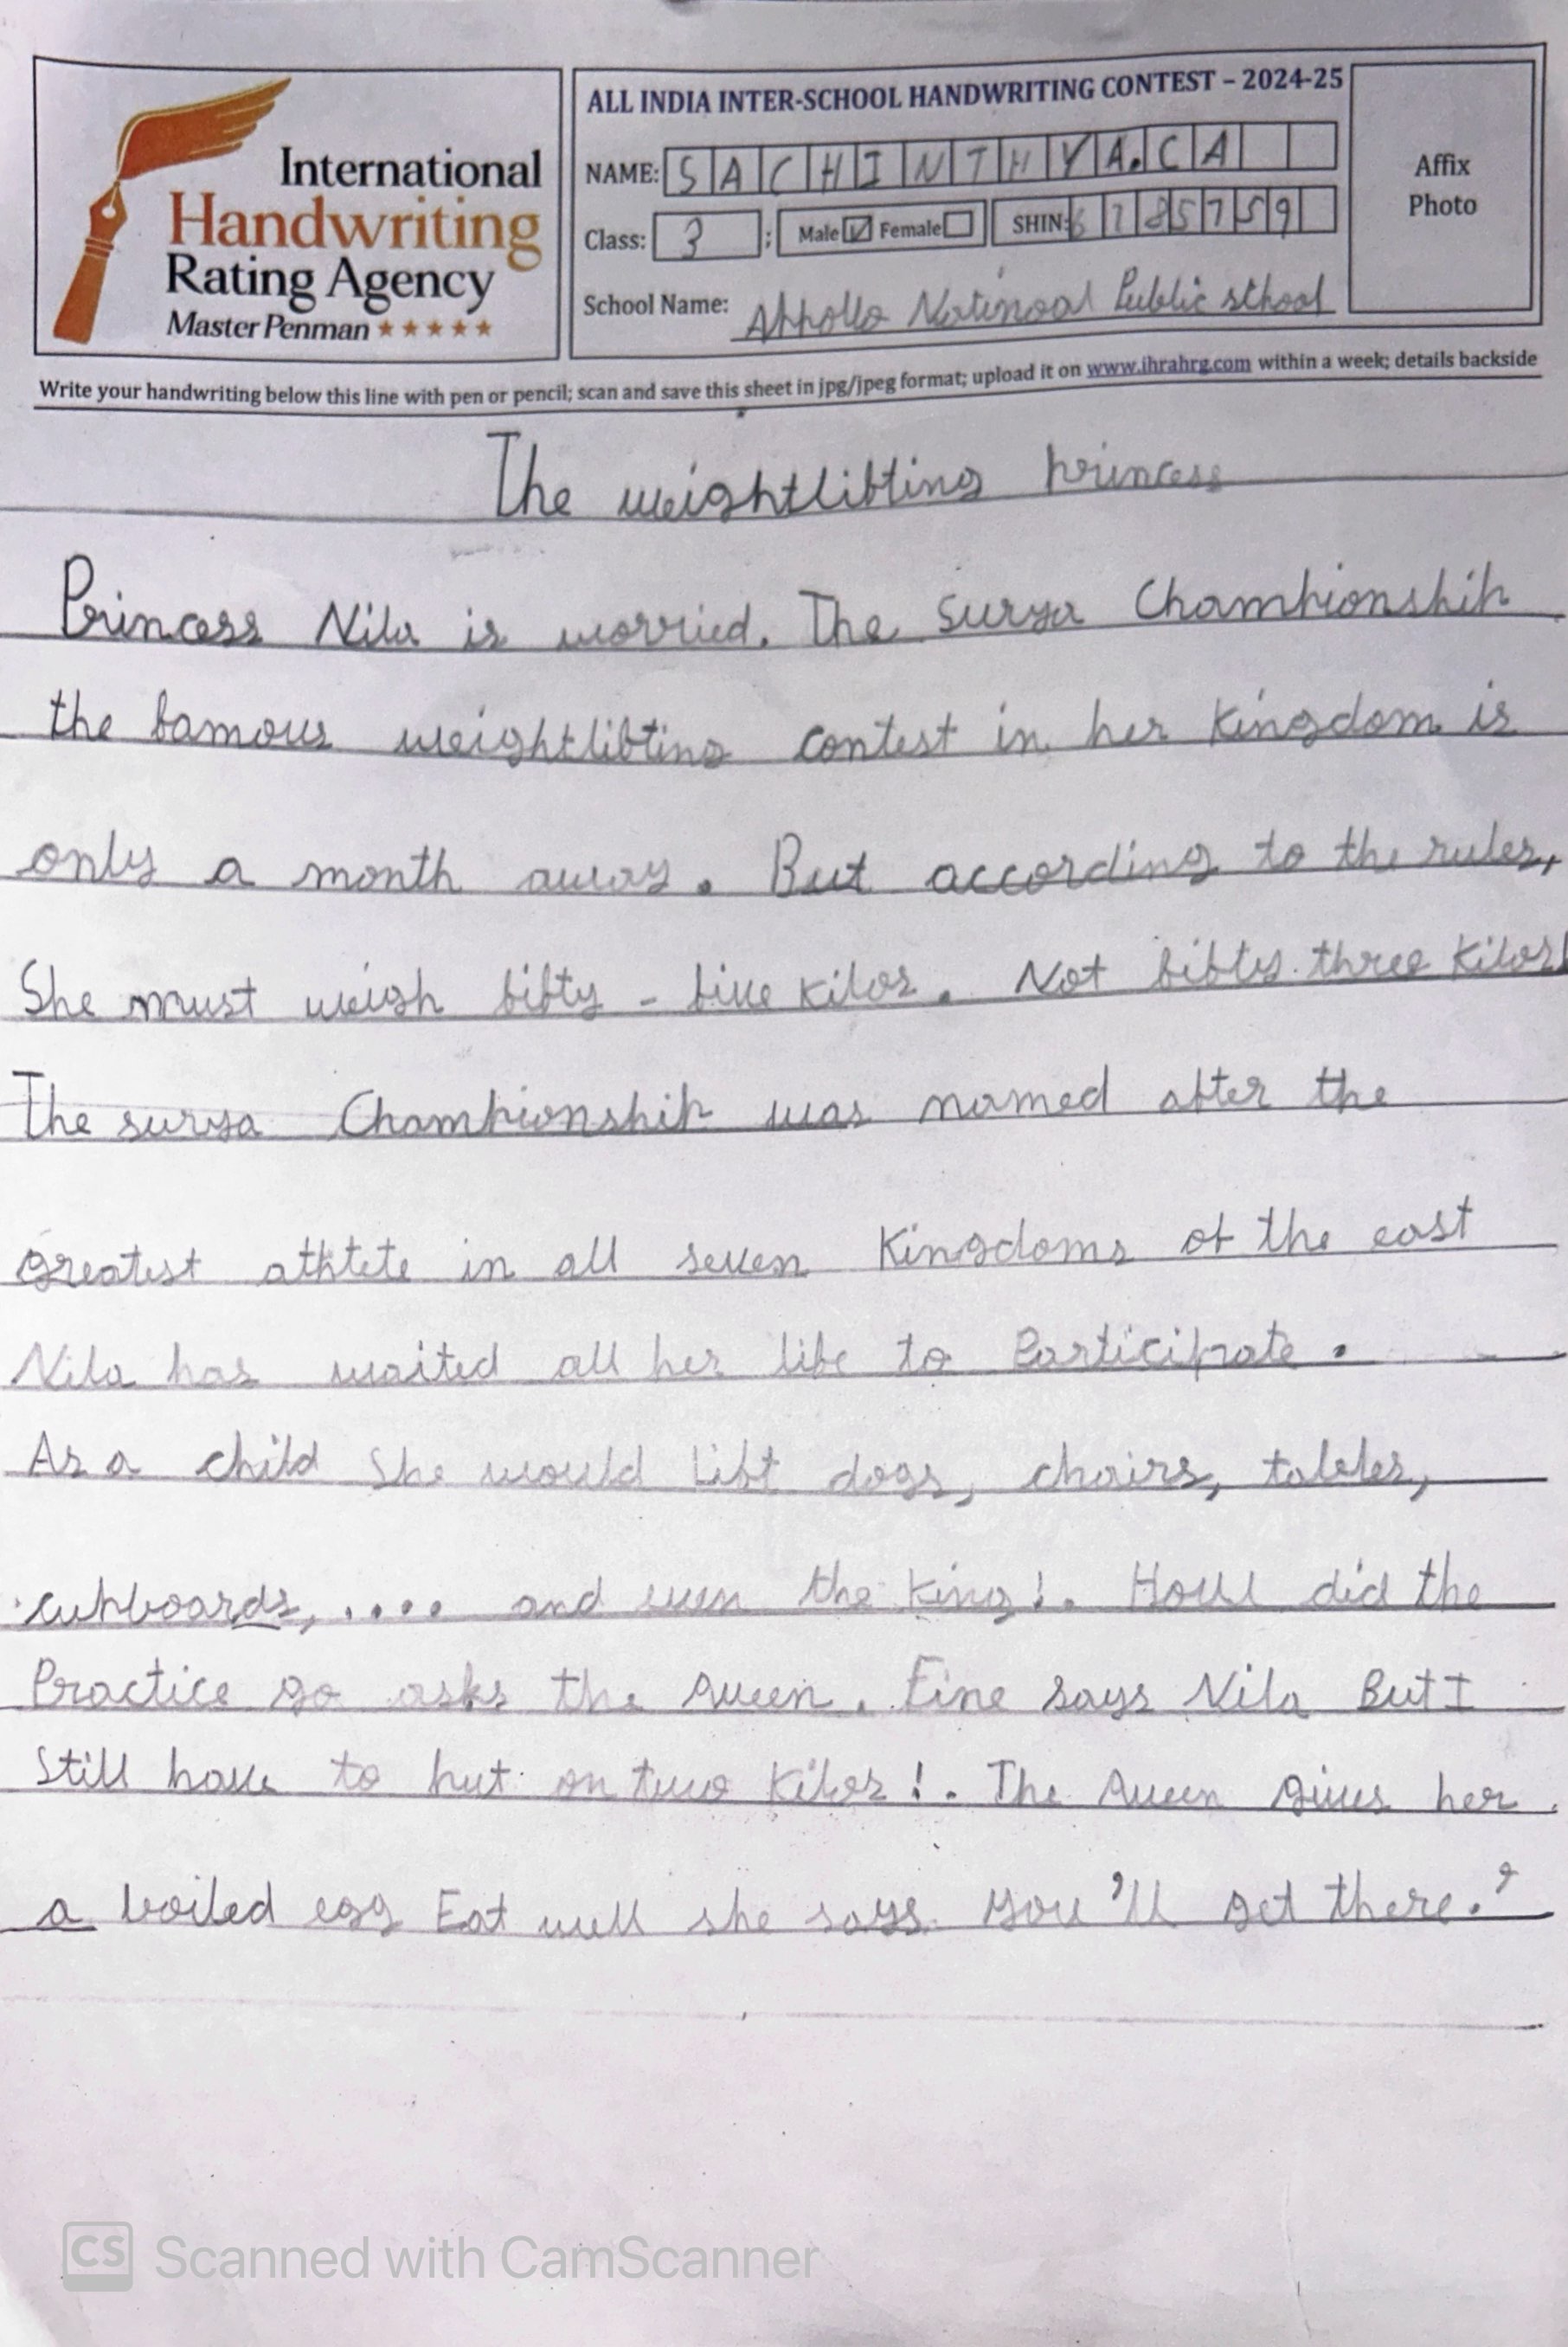 International
Handwriting
Rating Agency
Master Penman ★★★★★
ALL INDIA INTER-SCHOOL HANDWRITING CONTEST – 2024-25
NAME: SACHINTHYA.CA
Class: 3 ; Male ☑ Female ☐ SHIN: 6785759
School Name: Appollo Natinoal Public school
Affix
Photo
Write your handwriting below this line with pen or pencil; scan and save this sheet in jpg/jpeg format; upload it on www.ihrahrg.com within a week; details backside
The weightlifting princess
Princess Nila is worried. The Surya Championship
the famous weightlifting contest in her Kingdom is
only a month away. But according to the rules,
She must weigh fifty - five kilos. Not fifty three kilos!
The surya Championship was named after the
greatest athtete in all seven Kingdoms of the east
Nila has waited all her life to Participate.
As a child She would Lift dogs, chairs, tables,
cupboards, .... and even the King!. How did the
Practice go asks the Queen. Fine says Nila But I
Still have to put on two Kilos!. The Queen gives her
a boiled egg Eat well she says you'll get there.'
CS Scanned with CamScanner